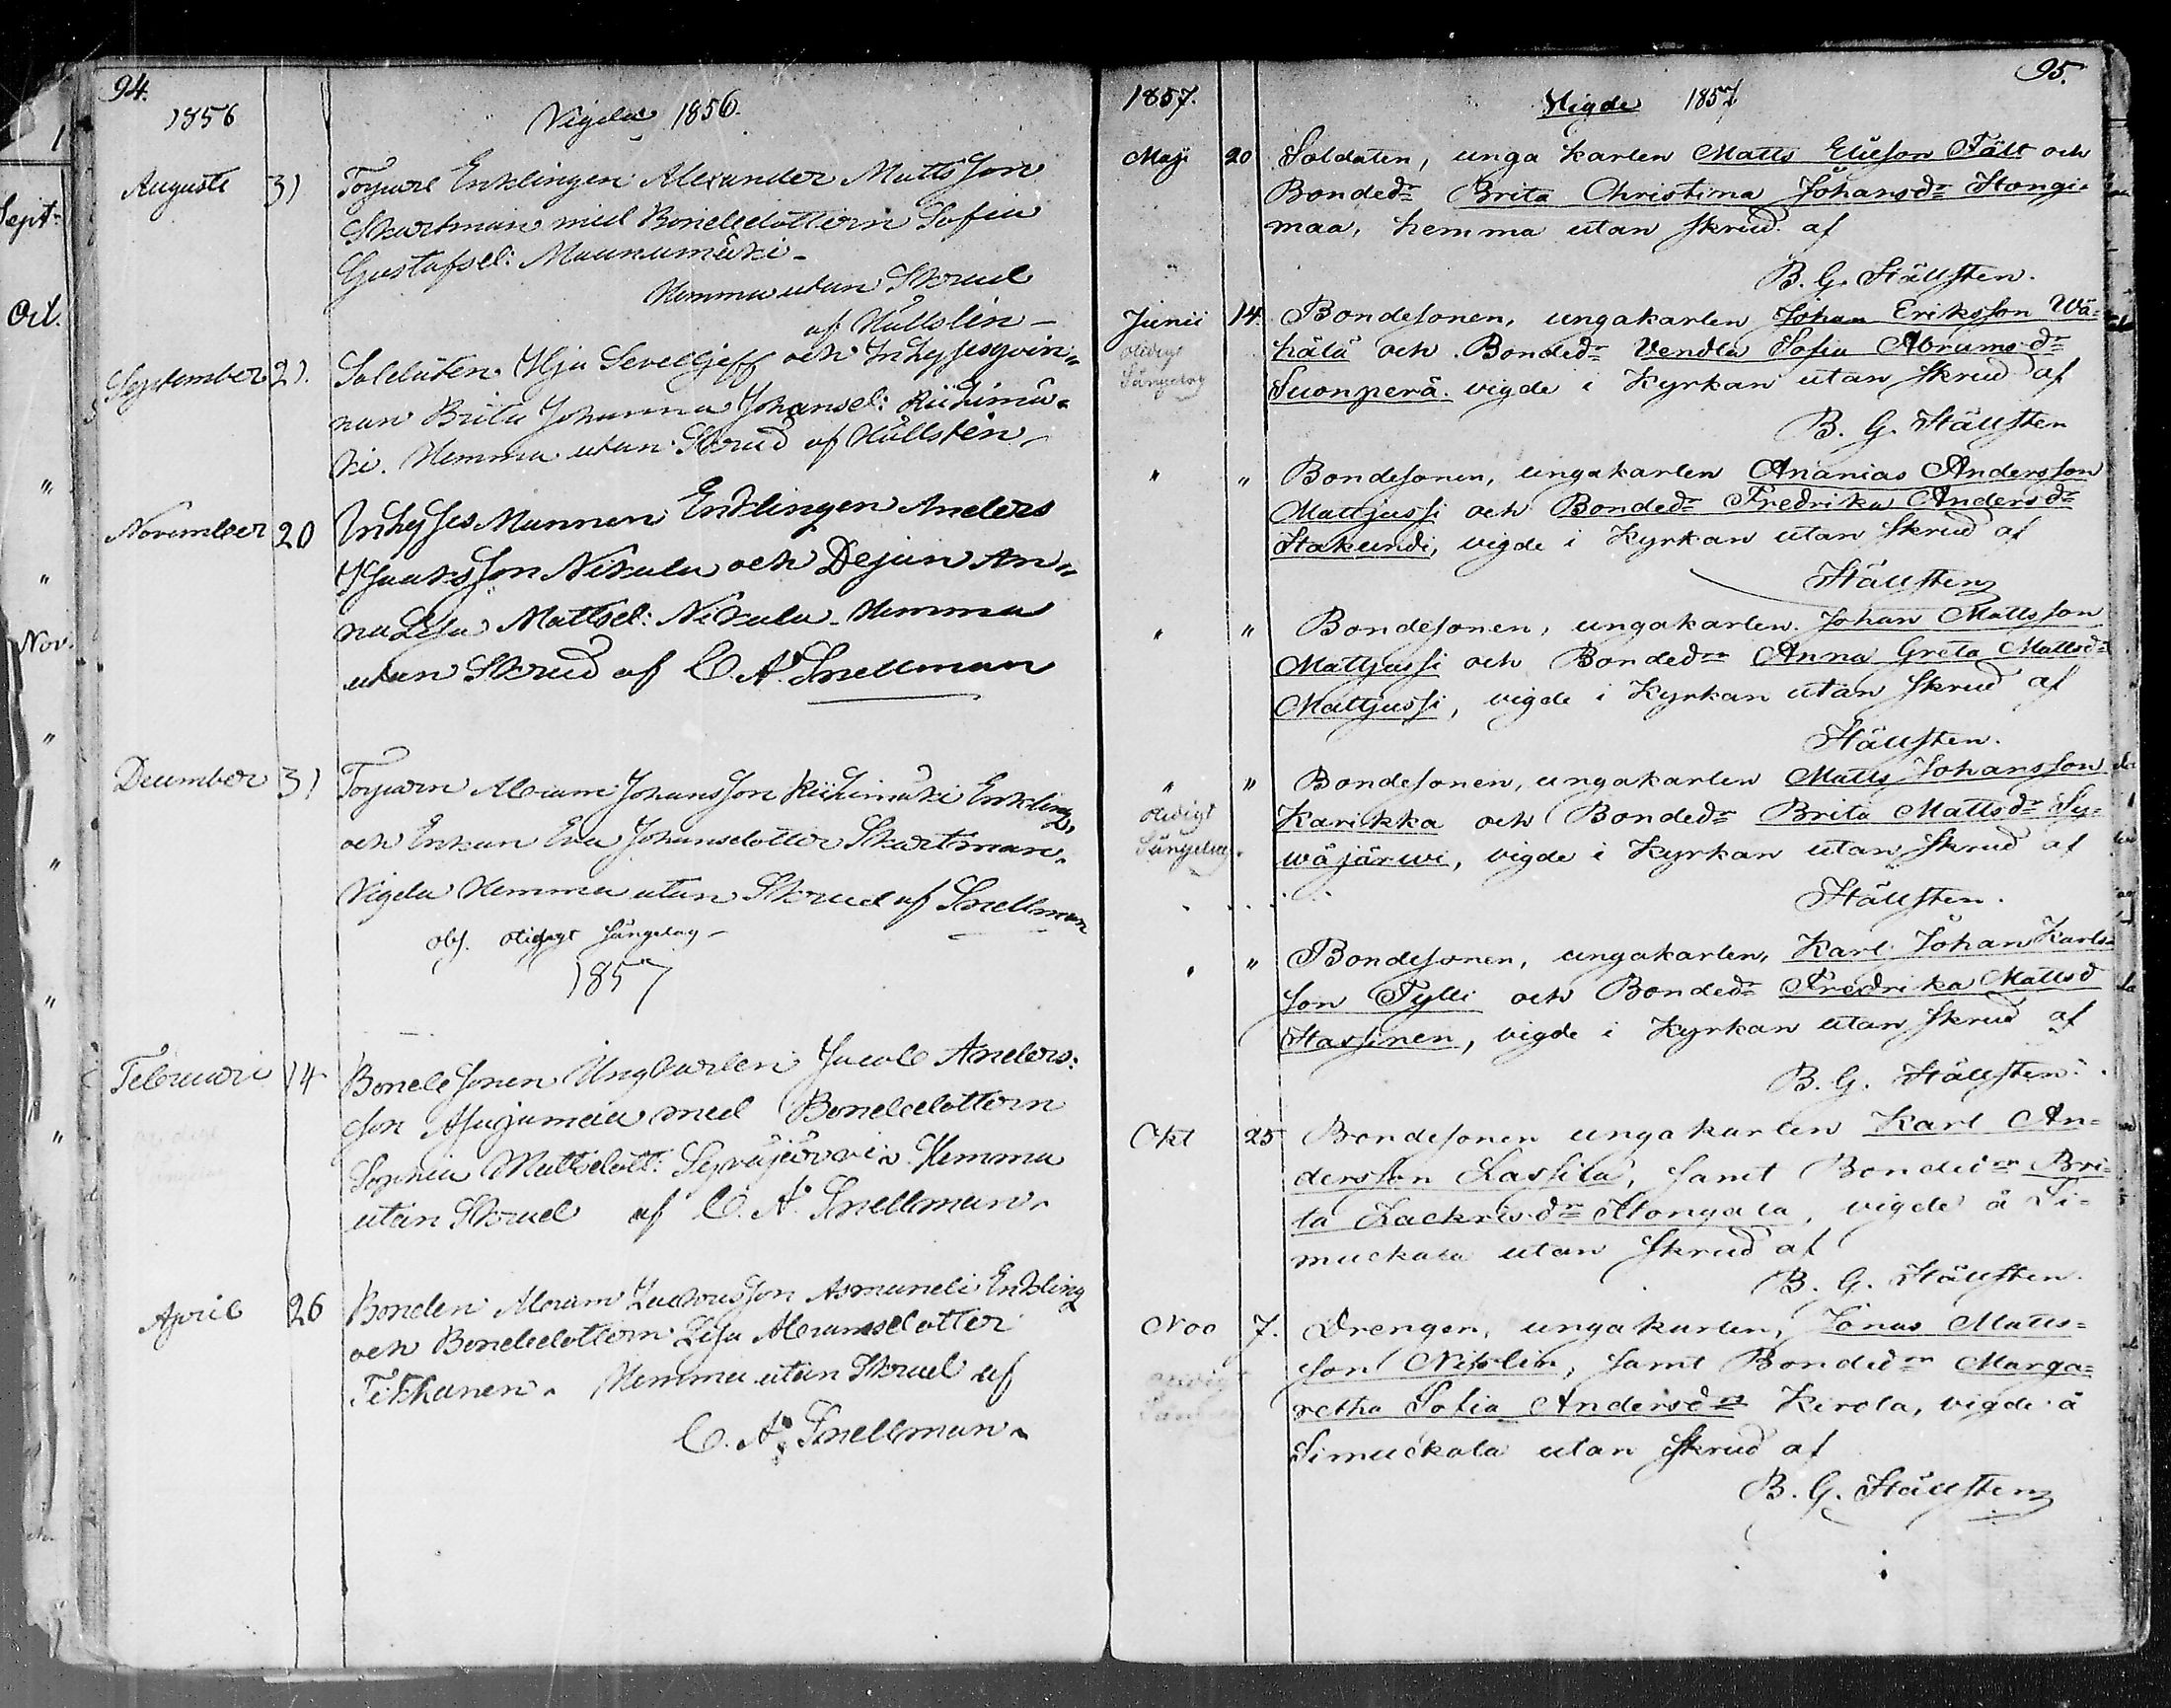 94.
1856
Vigde 1856.
Augusti 31 Torparen Enklingen Alexander Mattsson
Skartman med Bondedottern Sofia
Gustafsd: Maunumäki
Hemma utan Skrud
af Hällsten
September 21. Soldaten Ilja och Inhysesqvin-
nan Brita Johanna Johansd: Riihimä-
ki. Hemma utan Skrud af Hällsten
November 20 Inhyses Mannen Enklingen Anders
Isaksson Nikula och Dejan An-
na Lisa Mattsd: Nikula Hemma
utan Skrud af C. A. Snellman
December 31 Torparen Abram Johansson Riihimäki Enkling
och Enkan Eva Johansdotter Skartman.
Vigda Hemma utan Skrud af Snellman
obs. otidigt Sängelag
1857
Februari 14 Bondesonen Ungkarlen Jacob Anders-
son Asujamaa med Bondedottern
Sophia Mattsdott: Syväjärvi. Hemma
utan Skrud af C. A. Snellman.
April 26 Bonden Abram Zachrisson Asmundi Enkling
och Bondedottern Lisa Abramsdotter
Tikkanen. Hemma utan Skrud af
C. A. Snellman.
95.
1857.
Vigde 1857
Maji 20 Soldaten, unga karlen Matts Eliesson Fält och
Bondedr Brita Christina Johansdr Hongi-
maa, hemma utan skrud af
B. G. Hällsten.
Junii 14. Bondesonen, ungakarlen Johan Eriksson Wä-
otidigt
Sängelag
hälä och Bondedr Vendla Sofia Abramsdr
Suonperä. vigde i Kyrkan utan skrud af
B. G. Hällsten
" " Bondesonen, ungakarlen Ananias Andersson
Mattjussi och Bondedr Fredrika Andersdr
Hakundi, vigde i Kyrkan utan skrud af
Hällsten
" " Bondesonen, ungakarlen Johan Mattsson
Mattjussi och Bondedr Anna Greta Mattsdr
Mattjussi, vigde i Kyrkan utan skrud af
Hällsten.
" " Bondesonen, ungakarlen Matts Johansson
otidigt
Sängelag.
Karikka och Bondedr Brita Mattsdr Sy-
wäjärwi, vigde i Kyrkan utan skrud af
Hällsten.
" " Bondesonen, ungakarlen, Karl Johan Karls-
son Tylli och Bondedr Fredrika Mattsd
Hassinen, vigde i Kyrkan utan skrud af
B. G. Hällsten.
Okt 25 Bondesonen ungakarlen Karl An-
dersson Lassila, samt Bondedr Bri-
ta Zackrisdr Hongala, vigde å Si-
muckala utan skrud af
B. G. Hällsten.
Nov 7. Drengen, ungakarlen, Jonas Matts-
son Nisslin, samt Bondedr Marga-
retha Sofia Andersdr Kerola, vigde å
Simuckala utan skrud af
B. G. Hällsten
Sept.
Oct.
"
"
Nov.
"
"
"
"